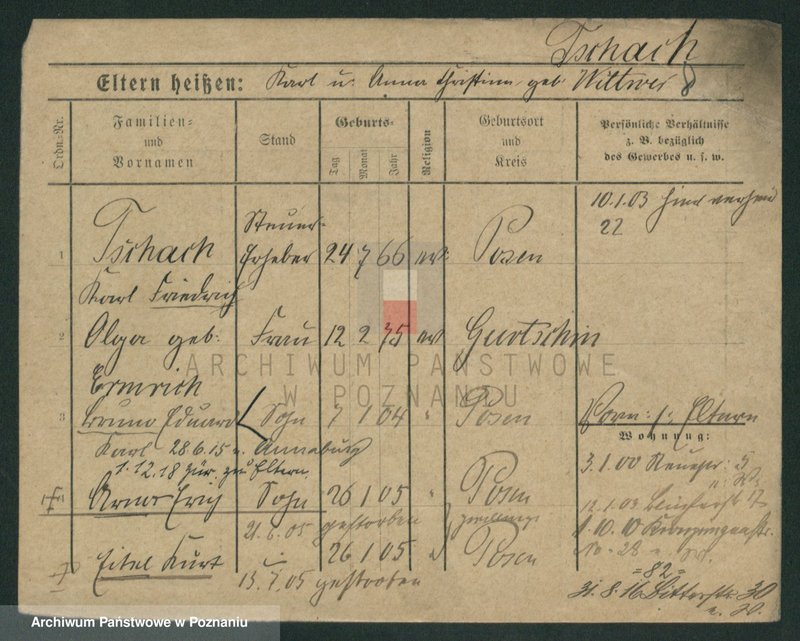 Tschach
Eltern heißen: Karl u. Anna Christine geb. Wittwer
Ordn.-Nr.
Familien- und Vornamen
Stand
Geburts-
Tag
Monat
Jahr
Religion
Geburtsort und Kreis
Persönliche Verhältnisse z. B. bezüglich des Gewerbes u. s. w.
10.1.03 hier
22
1 Tschach Steuer-Erheber 24 7 66 ev. Posen
Karl Friedrich
2 Olga geb. Frau 12 2 75 ev Gurtschin
Ermrich
3 Bruno Eduard Sohn 7 1 04 " Posen
Vorm: s: Eltern
Karl 28.6.15 n. Annaburg
Wohnung:
1.12.18 zur. zu Eltern
3.1.00 5
Arno Erich Sohn 26 1 05 " Posen
12.1.03 17
21.6.05 gestorben
1.10.10
Eitel Kurt " 26 1 05 " Posen
No. 28
13.7.05 gestorben
=82=
31.8.16 Ritterstr. 30
ARCHIWUM PAŃSTWOWE
W POZNANIU
Archiwum Państwowe w Poznaniu